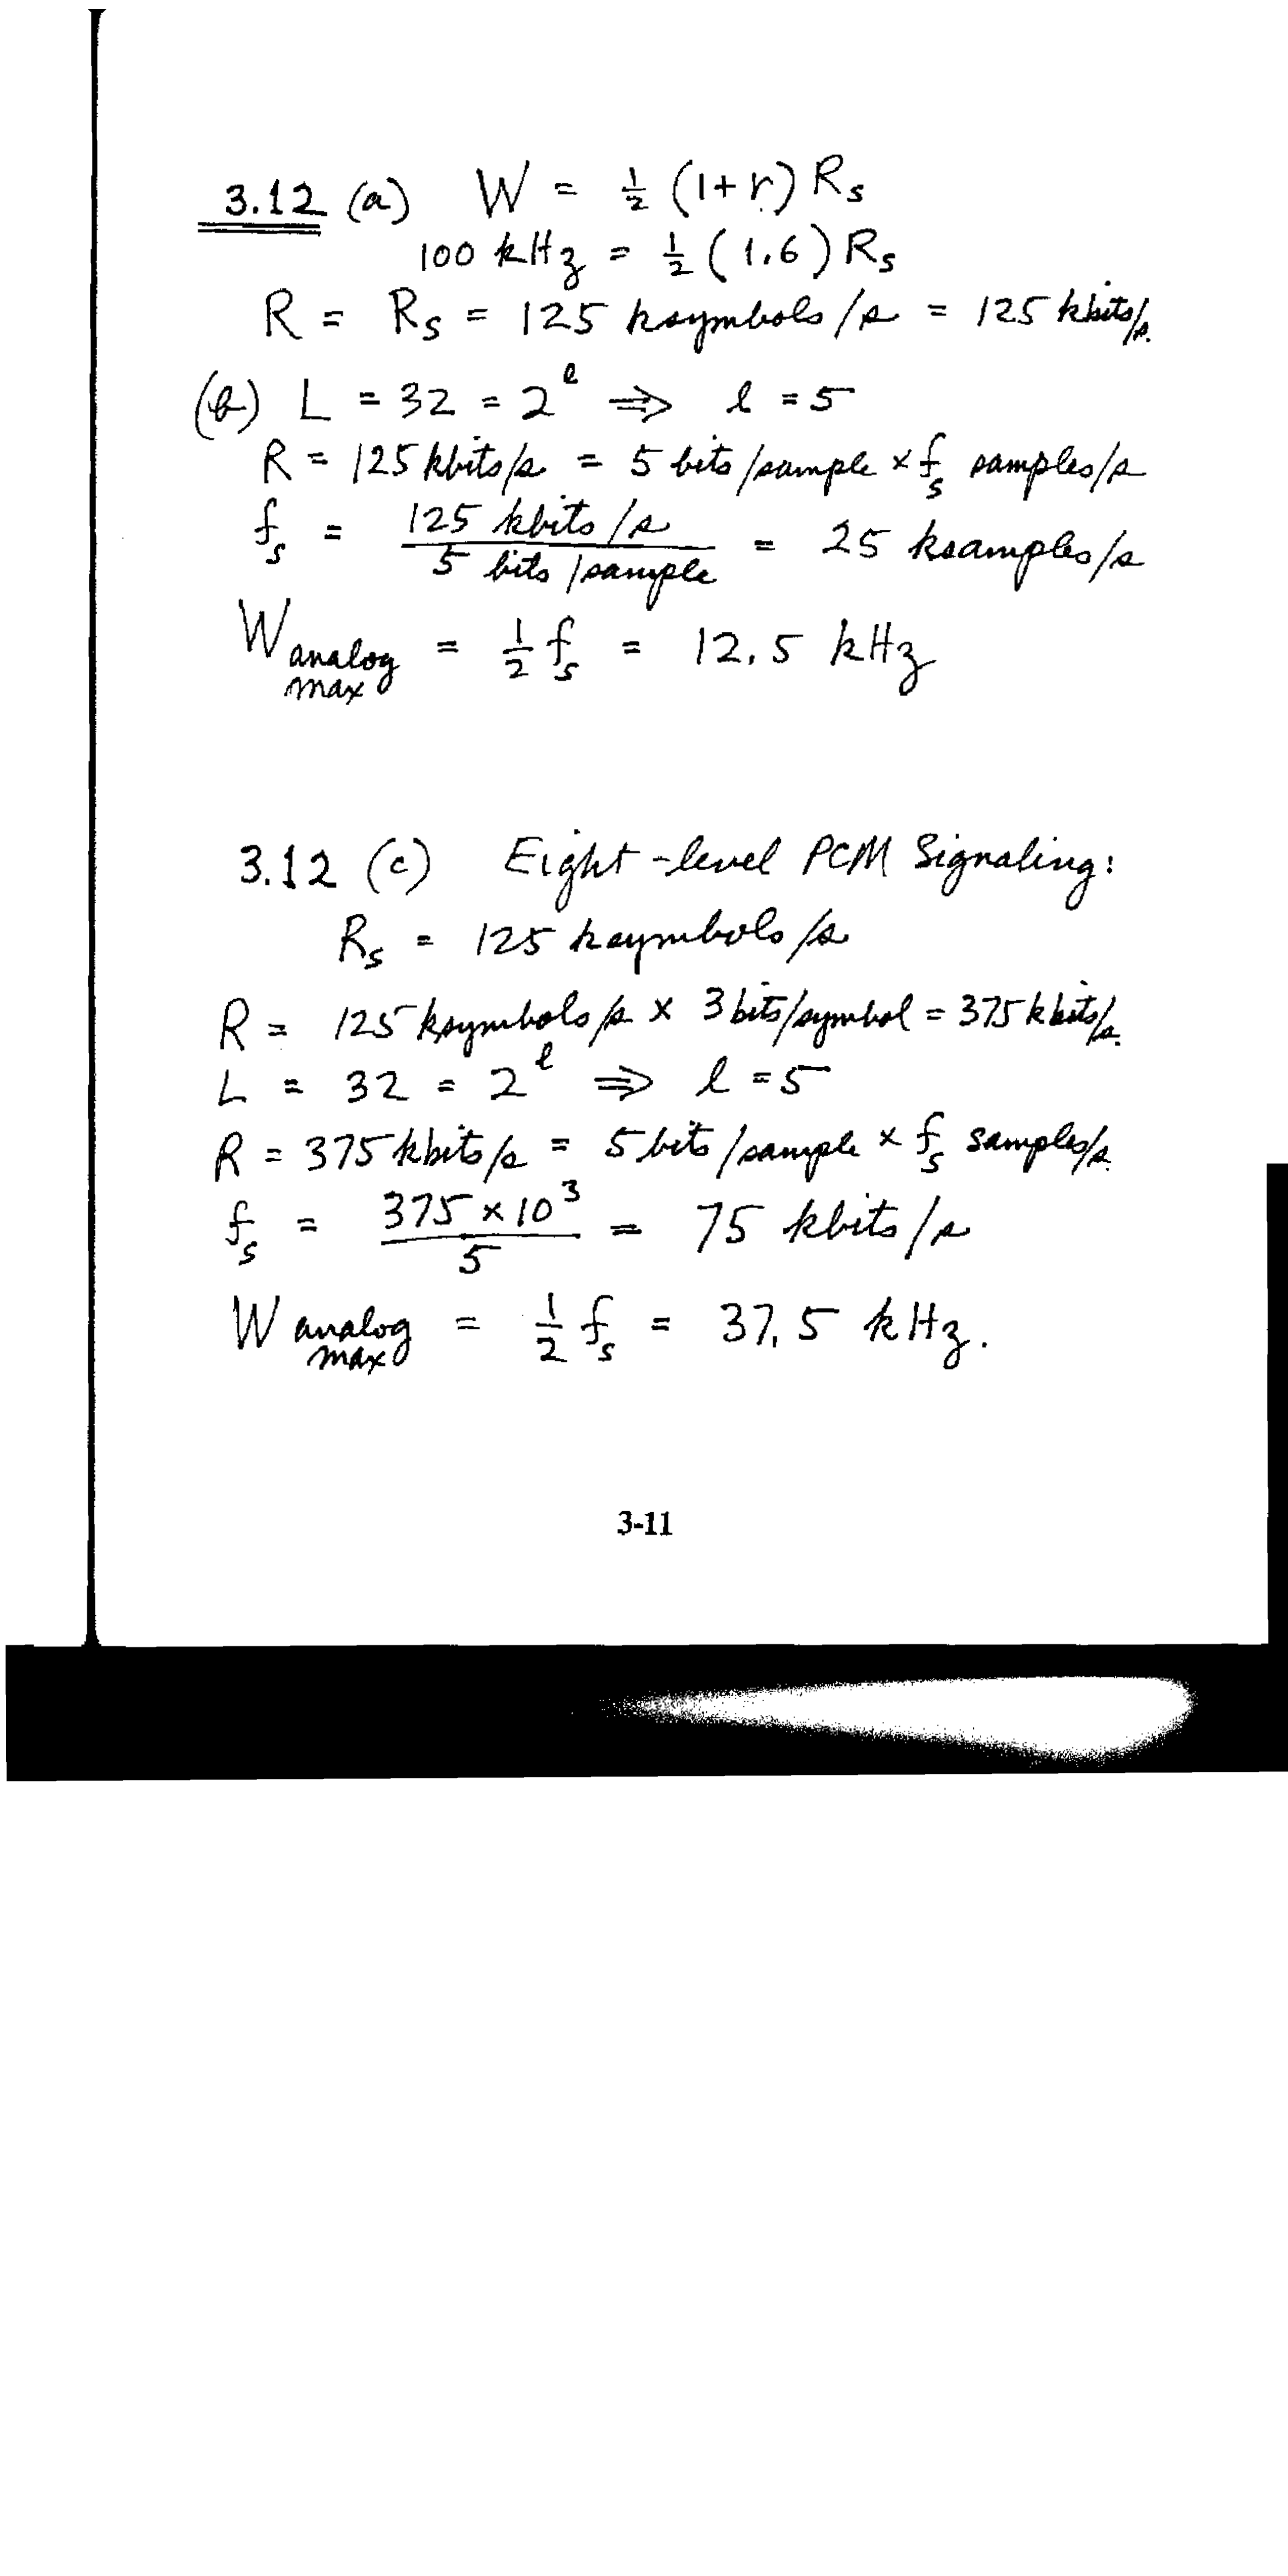 3.12 (a) W = ½ (1+r) Rs
100 kHz = ½ (1.6) Rs
R = Rs = 125 ksymbols/s = 125 kbits/s.
(b) L = 32 = 2^l ⇒ l = 5
R = 125 kbits/s = 5 bits/sample × fs samples/s
fs = 125 kbits/s / 5 bits/sample = 25 ksamples/s
W analog max = ½ fs = 12.5 kHz
3.12 (c) Eight-level PCM Signaling:
Rs = 125 ksymbols/s
R = 125 ksymbols/s × 3 bits/symbol = 375 kbits/s.
L = 32 = 2^l ⇒ l = 5
R = 375 kbits/s = 5 bits/sample × fs samples/s.
fs = 375 × 10³ / 5 = 75 kbits/s
W analog max = ½ fs = 37.5 kHz.
3-11